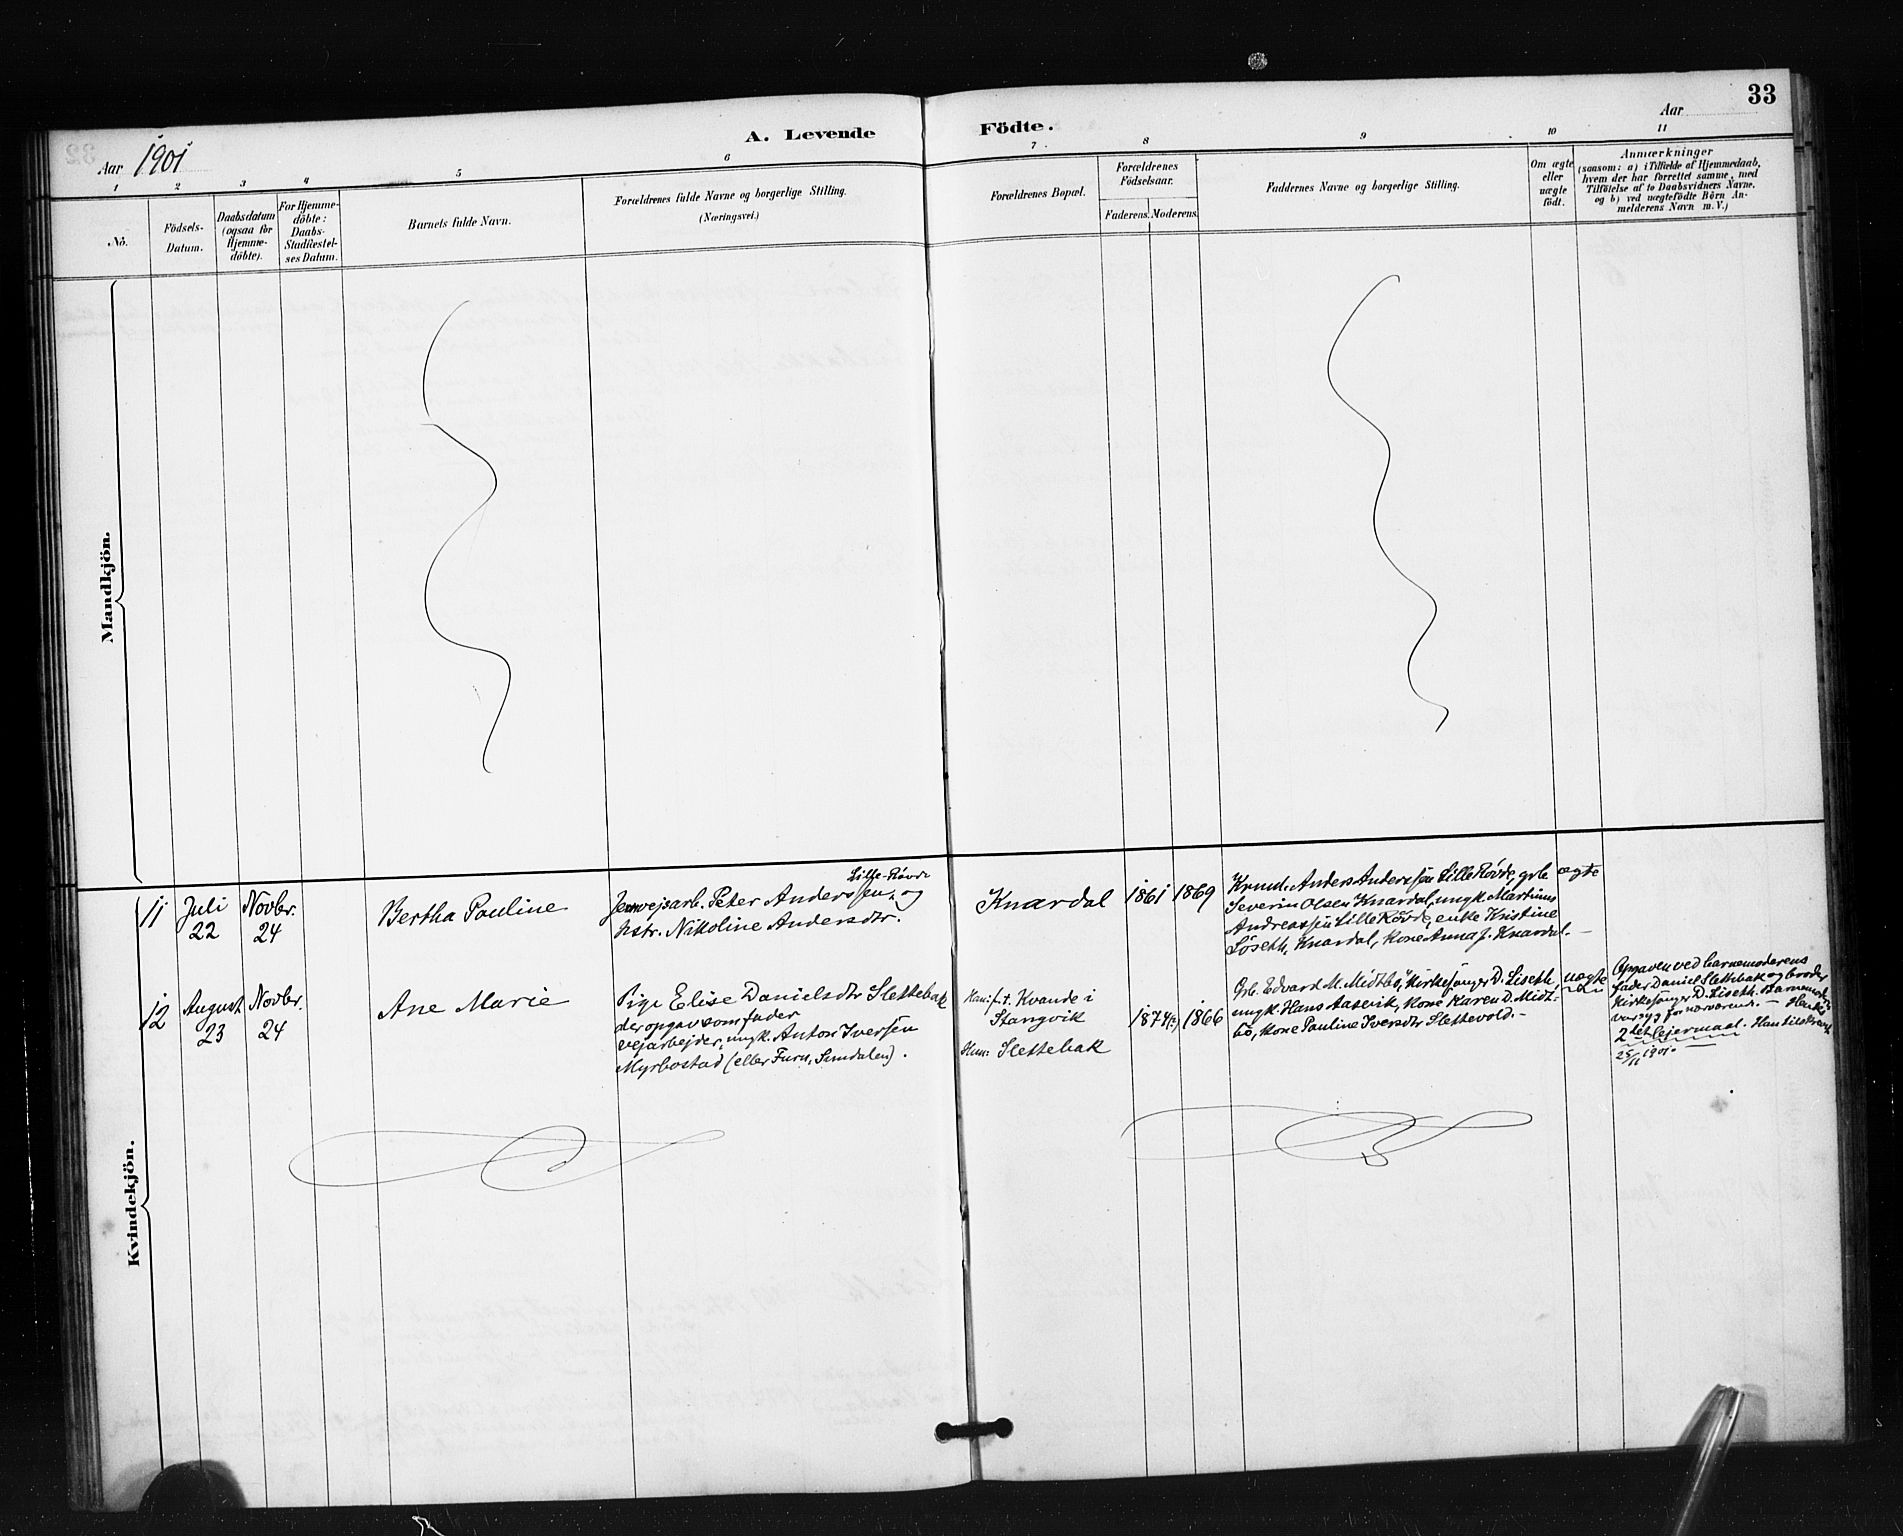 33
A. Levende Födte.
Aar 1901
Aar
1 2 3 4 5 6 7 8 9 10 11
No.
Födsels-
Datum.
Daabsdatum
(ogsaa for
Hjemme-
döbte).
For Hjemme-
döbte:
Daabs-
Stadfæstel-
ses Datum.
Barnets fulde Navn.
Forældrenes fulde Navne og borgerlige Stilling.
(Næringsvei.)
Forældrenes Bopæl.
Forældrenes
Födselsaar.
Faderens. Moderens.
Faddernes Navne og borgerlige Stilling.
Om ægte
eller
uægte
födt.
Anmærkninger
(saasom: a) i Tilfælde af Hjemmedaab,
hvem der har forrettet samme, med
Tilföielse af to Daabsvidners Navne,
og b) ved uægtefödte Börn An-
melderens Navn m. V.)
Mandkjön.
Kvindekjön.
11
Juli
22
Novbr.
24
Bertha Pauline
Lille-Rövde
Jernvejsarb. Peter Anderssen, og
hstr. Nikoline Andersdtr.
Knardal
1861
1869
Krmd. Anders Anderssen Lille Rövde, grb.
Severin Olsen Knardal, ungk. Martinus
Andreassen Lille Rövde, enke Kristine
Löseth, Knardal, kone Anna J. Knardal.
ægte
12
August
23
Novbr.
24
Ane Marie
Pige Elise Danielsdtr Slettebak
der opgav som fader
vejarbejder, ungk. Anton Iversen
Myrbostad (eller Furu, Sundalen).
Han: f.t. Kvande i
Stangvik
Hun: Slettebak
1874(?)
1866
Grb. Edvard M. Midtbö, Kirkesanger D. Liseth,
ungk. Hans Aasevik, kone Karen D. Midt-
bö, kone Pauline Iversdtr Slettevold.
uægte
Opgaven ved barnemoderens
fader Daniel Slettebak og broder
Kirkesanger D. Liseth. Barnemoderen
var syg
2det lejermaal.
25/11 1901.